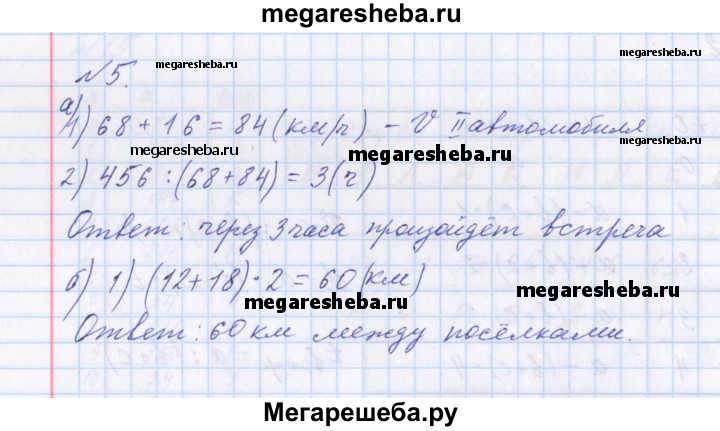 megaresheba.ru
№5. megaresheba.ru
megaresheba.ru
а)
1) 68 + 16 = 84 (км/ч) - V II автомобиля
megaresheba.ru
megaresheba.ru
2) 456 : (68+84) = 3 (ч)
Ответ: через 3 часа произойдёт встреча
б) 1) (12+18)·2 = 60 (км)
megaresheba.ru
megaresheba.ru
Ответ: 60 км между посёлками.
Мегарешеба.ру